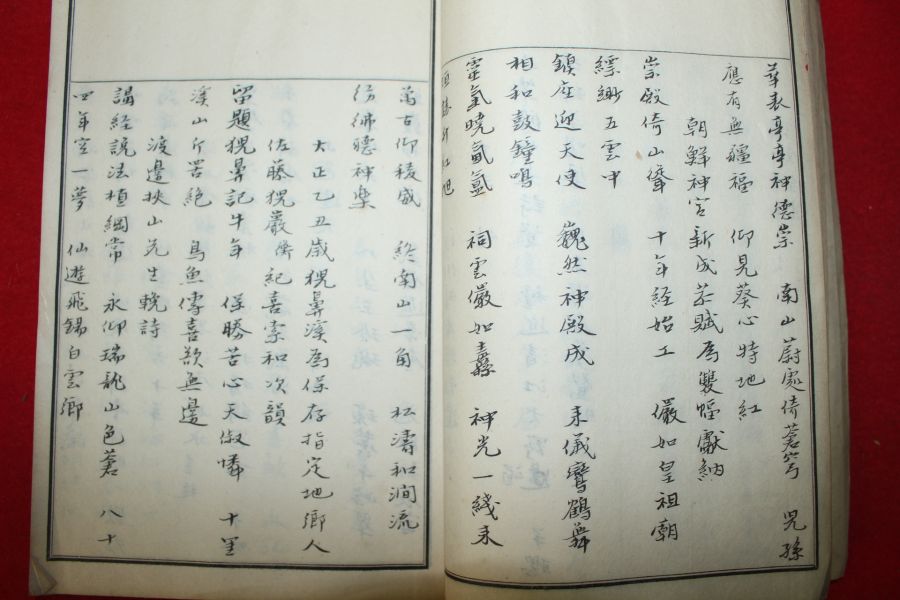 華表亭亭神德崇 南山蔚處倚蒼穹 児孫
應有無疆福 仰見葵心特地紅
朝鮮神宮新成恭賦為雙幅獻納
崇殿倚山聳 十年経始工 儼如皇祖廟
縹緲五雲中
鎮座迎天使 巍然神殿成 来儀鸞鶴舞
相和鼓鐘鳴
靈氣曉氤氳 祠雲儼如纛 神光一綫来
萬古仰稜威 終南山一角 松濤和澗流
彷彿聴神楽
大正乙丑歳猊鼻溪為保存指定地鄉人
佐藤猊巖衝紀喜索和次韻
留題猊鼻記牛年 保勝苦心天俶憐 十里
溪山斤罟絶 鳥魚儔喜歓無邊
渡邊挾山先生輓詩
講経説法植綱常 永仰瑞龍山色蒼 八十
四年空一夢 仙遊飛錫白雲鄉